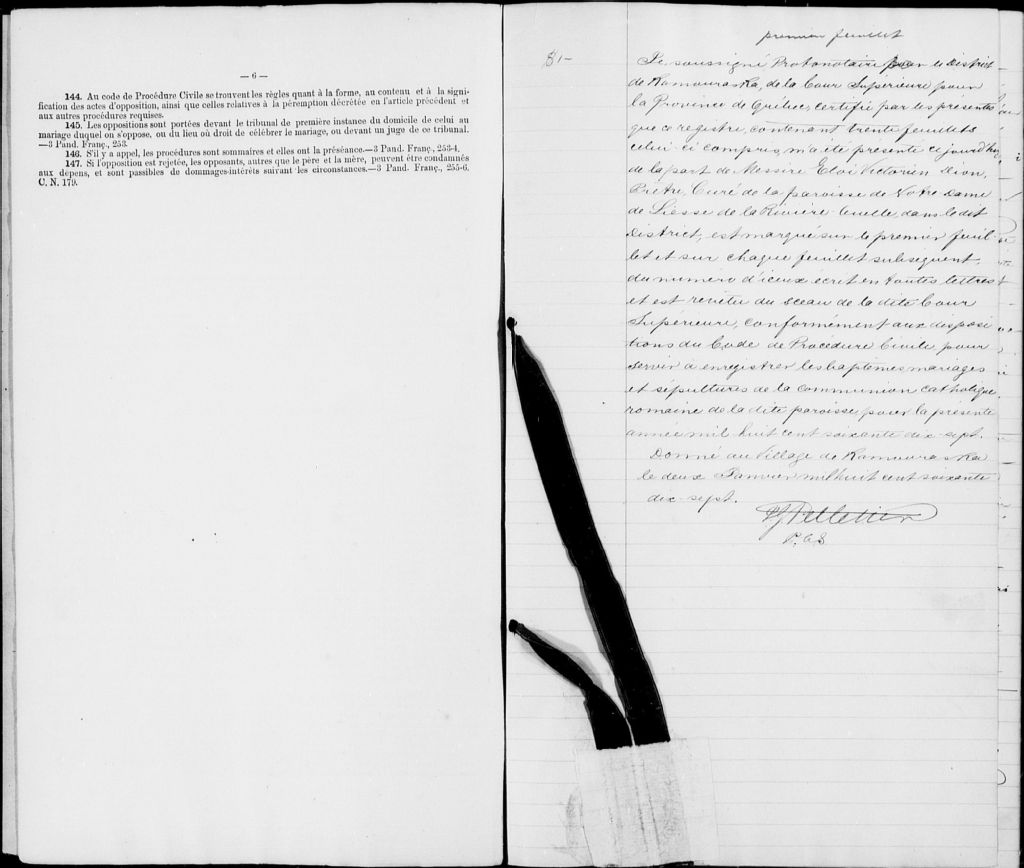 — 6 —
144. Au code de Procédure Civile se trouvent les règles quant à la forme, au contenu et à la signi-
fication des actes d'opposition, ainsi que celles relatives à la péremption décrétée en l'article précédent et
aux autres procédures requises.
145. Les oppositions sont portées devant le tribunal de première instance du domicile de celui au
mariage duquel on s'oppose, ou du lieu où droit de célébrer le mariage, ou devant un juge de ce tribunal.
—3 Pand. Franç., 253.
146. S'il y a appel, les procédures sont sommaires et elles ont la préséance.—3 Pand. Franç., 253-4.
147. Si l'opposition est rejetée, les opposants, autres que le père et la mère, peuvent être condamnés
aux dépens, et sont passibles de dommages-intérêts suivant les circonstances.—3 Pand. Franç., 255-6.
C. N. 179.
premier feuillet
$1-
Je soussigné Protonotaire pour le District
de Kamouraska, de la Cour Supérieure pour
la Province de Québec, certifie par les presentes
que ce registre, contenant trente feuillets
celui-ci compris, m'a été présenté ce jourd'hui
de la part de Messire Eloi Victorien Dion,
Prêtre, Curé de la paroisse de Notre Dame
de Liesse de la Rivière Ouelle, dans le dit
District, est marqué sur le premier feuil-
let et sur chaque feuillet subséquent,
du numéro d'iceux écrit en toutes lettres
et est revêtu du sceau de la dite Cour
Supérieure, conformément aux disposi
tions du Code de Procédure Civile pour
servir à enregistrer les baptêmes mariages
et sépultures de la communion catholique
romaine de la dite paroisse pour la présente
année mil huit cent soixante dix-sept.
Donné au Village de Kamouraska
le deux Janvier mil huit cent soixante
dix-sept.
Pelletier
P.C.S